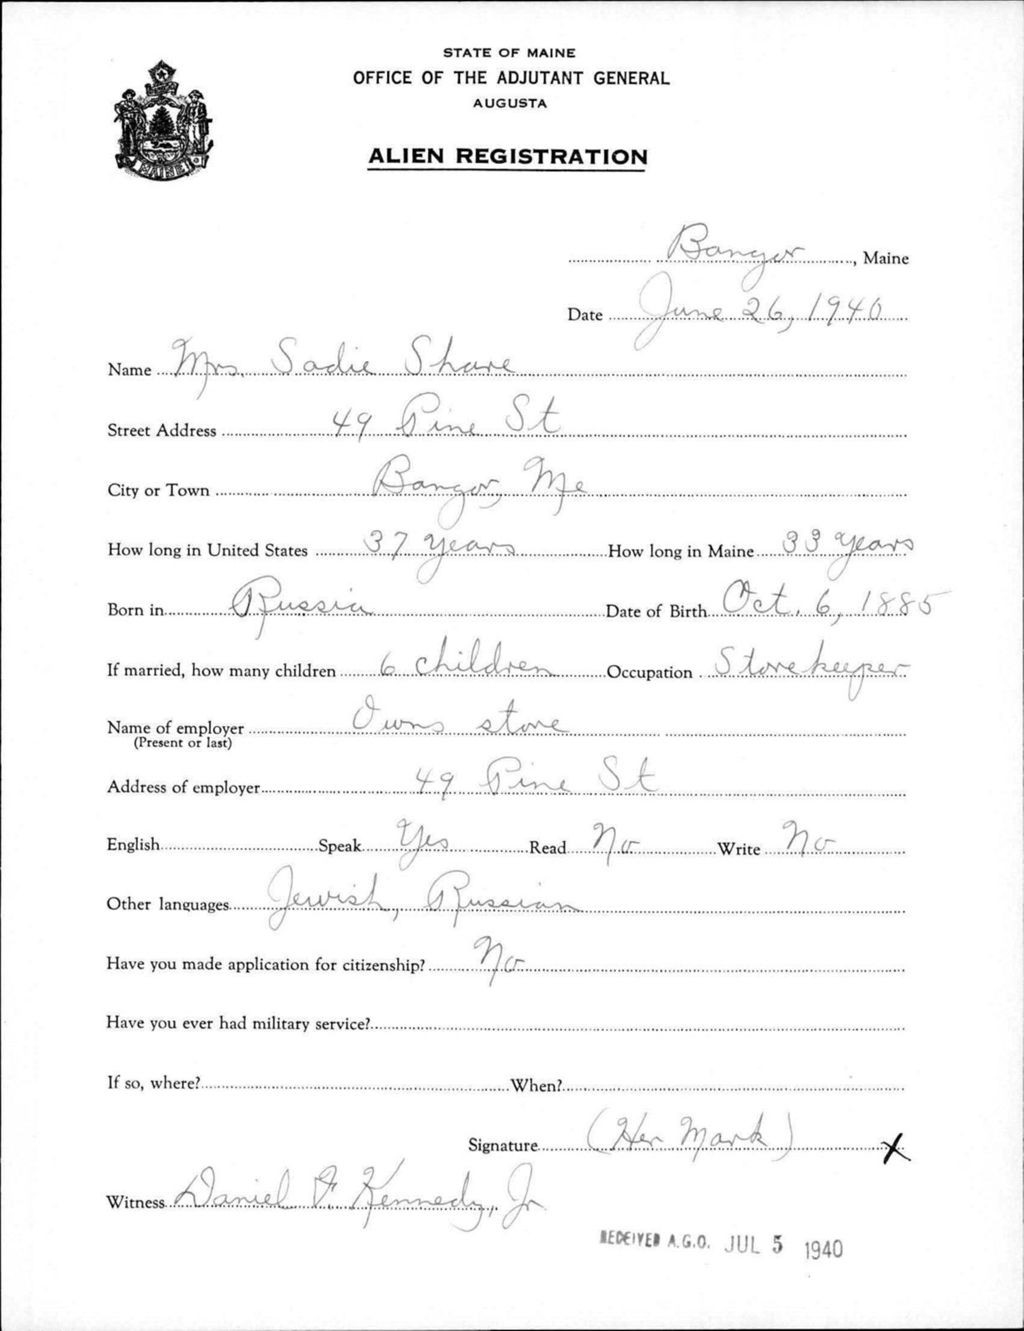 STATE OF MAINE
OFFICE OF THE ADJUTANT GENERAL
AUGUSTA
ALIEN REGISTRATION
MAINE
Bangor, Maine
Date June 26, 1940
Name Mrs. Sadie Share
Street Address 49 Pine St
City or Town Bangor, Me
How long in United States 37 years How long in Maine 33 years
Born in Russia Date of Birth Oct. 6, 1885
If married, how many children 6 children Occupation Storekeeper
Name of employer Owns store
(Present or last)
Address of employer 49 Pine St
English Speak Yes Read No Write No
Other languages Jewish, Russian
Have you made application for citizenship? No
Have you ever had military service?
If so, where? When?
Signature (Her Mark) X
Witness Daniel F. Kennedy, Jr
RECEIVED A.G.O. JUL 5 1940